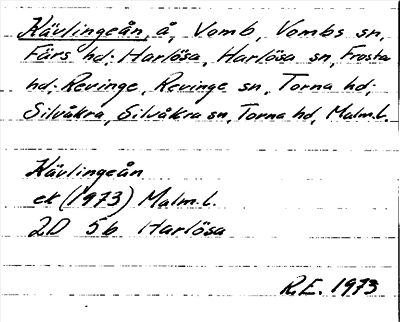 Kävlingeån, å, Vomb, Vombs sn,
Färs hd; Harlösa, Harlösa sn, Frosta
hd; Revinge, Revinge sn, Torna hd;
Silvåkra, Silvåkra sn, Torna hd, Malm.l.
Kävlingeån
ek (1973) Malm.l.
2D 5b Harlösa
R.E. 1973